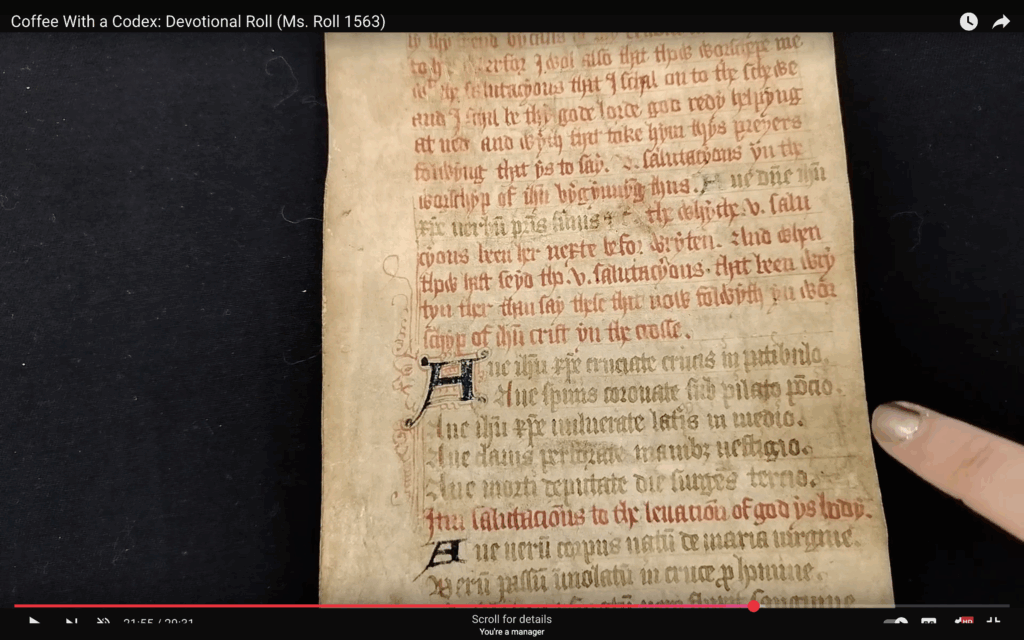 Coffee With a Codex: Devotional Roll (Ms. Roll 1563)
also that thow worscheppe me
salutacyons that I schal on to the schewe
and I schal be thy gode lorde god redy helpyng
at ned. and wyth that take hym thys preyers
folwyng that ys to say. v. salutacyons yn the
worschyp of ihu bygynnyng thus. Aue dne ihu
xpe uerbu pris the whyche. v. salu
cyons been her nexte befor wryten. And when
thow hast seyd thys. v. salutacyons. that been wry
tyn ther than say these that now folwyth yn wor
schyp of ihu crist yn the crosse.
Aue ihu xpe cruciate crucis in patibulo.
Aue spinis coronate sub pilato pocio.
Aue ihu xpe uulnerate latis in medio.
Aue clauis perforate manibz uestigio.
Aue morti deputate die surges tercio.
Itm salutacions to the leuacion of god ys body.
Aue ueru corpus natu de maria uirgine.
Veru passu imolatu in cruce p homine.
sanguine
21:55 / 29:31
Scroll for details
You're a manager